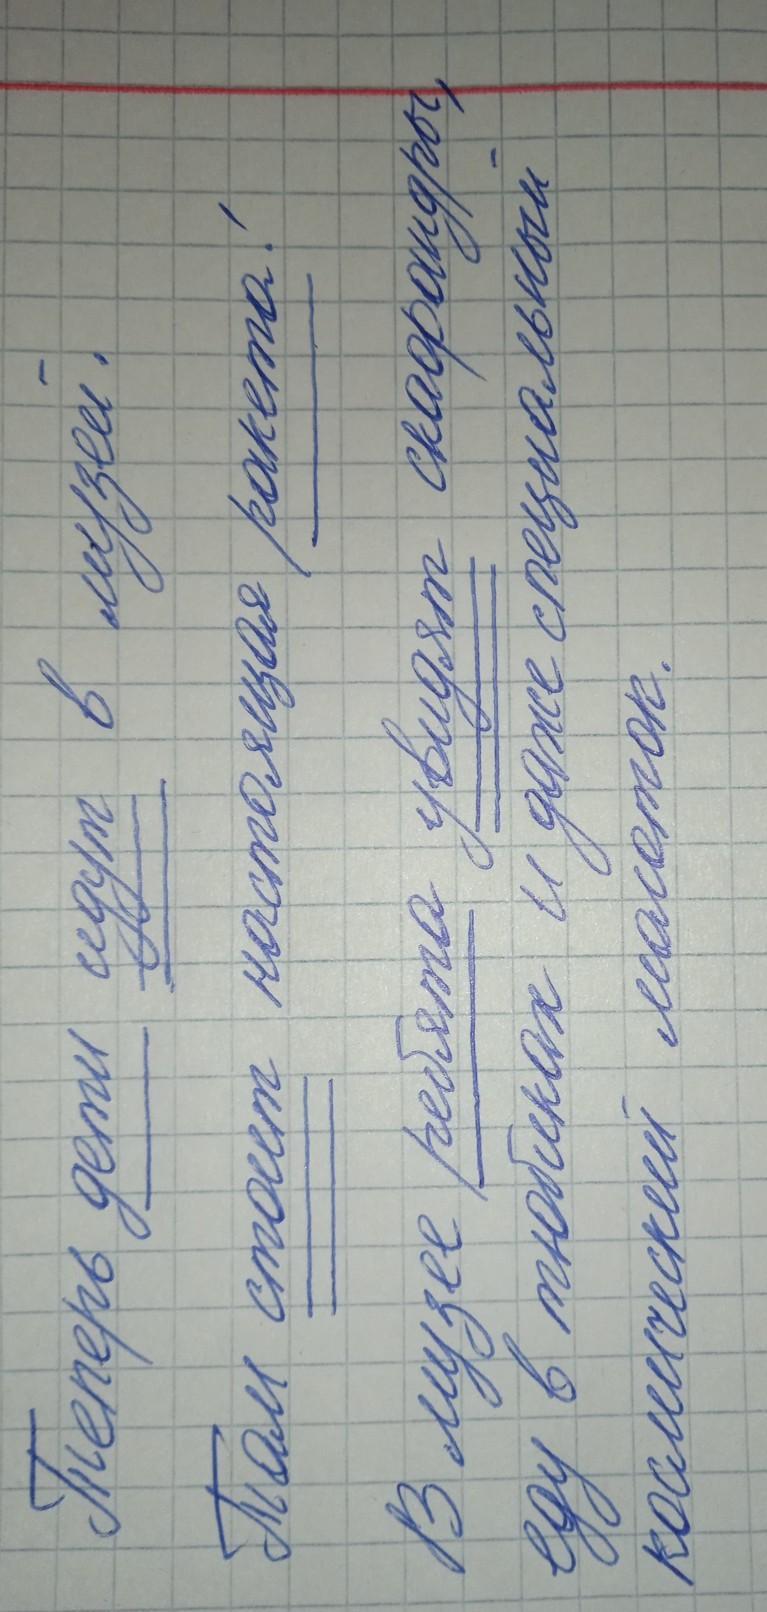 Теперь дети идут в музей.
Там стоит настоящая ракета!
В музее ребята увидят скафандры,
еду в тюбиках и даже специальный
космический молоток.